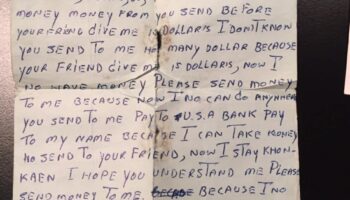 MONEY MONEY FROM YOU SEND BEFORE
YOUR FRIEND GIVE ME IS DOLLARIS I DONT KNOW
YOU SEND TO ME HOW MANY DOLLAR BECAUSE
YOUR FRIEND GIVE IS DOLLARIS, NOW I
NO HAVE MONEY PLEASE SEND MONEY
TO ME BECAUSE NOW I NO CAN GO ANYWHERE
YOU SEND TO ME PAY TO U.S.A BANK PAY
TO MY NAME BECAUSE I CAN TAKE MONEY
NO SEND TO YOUR FRIEND, NOW I STAY KHON-
KAEN I HOPE YOU UNDERSTAND ME PLEASE
SEND MONEY TO ME. BECAUSE I NO